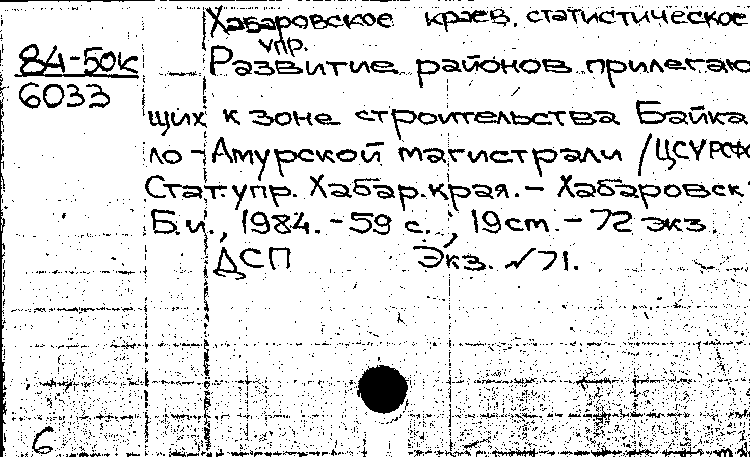 Хабаровское краев. статистическое
упр.
84-50к
6033
Развитие районов прилегаю
щих к зоне строительства Байка
ло-Амурской магистрали /ЦСУРСФ
Стат.упр. Хабар.края.- Хабаровск:
Б.и., 1984.-59 с.; 19см.-72 экз.
ДСП Экз. №71.
6